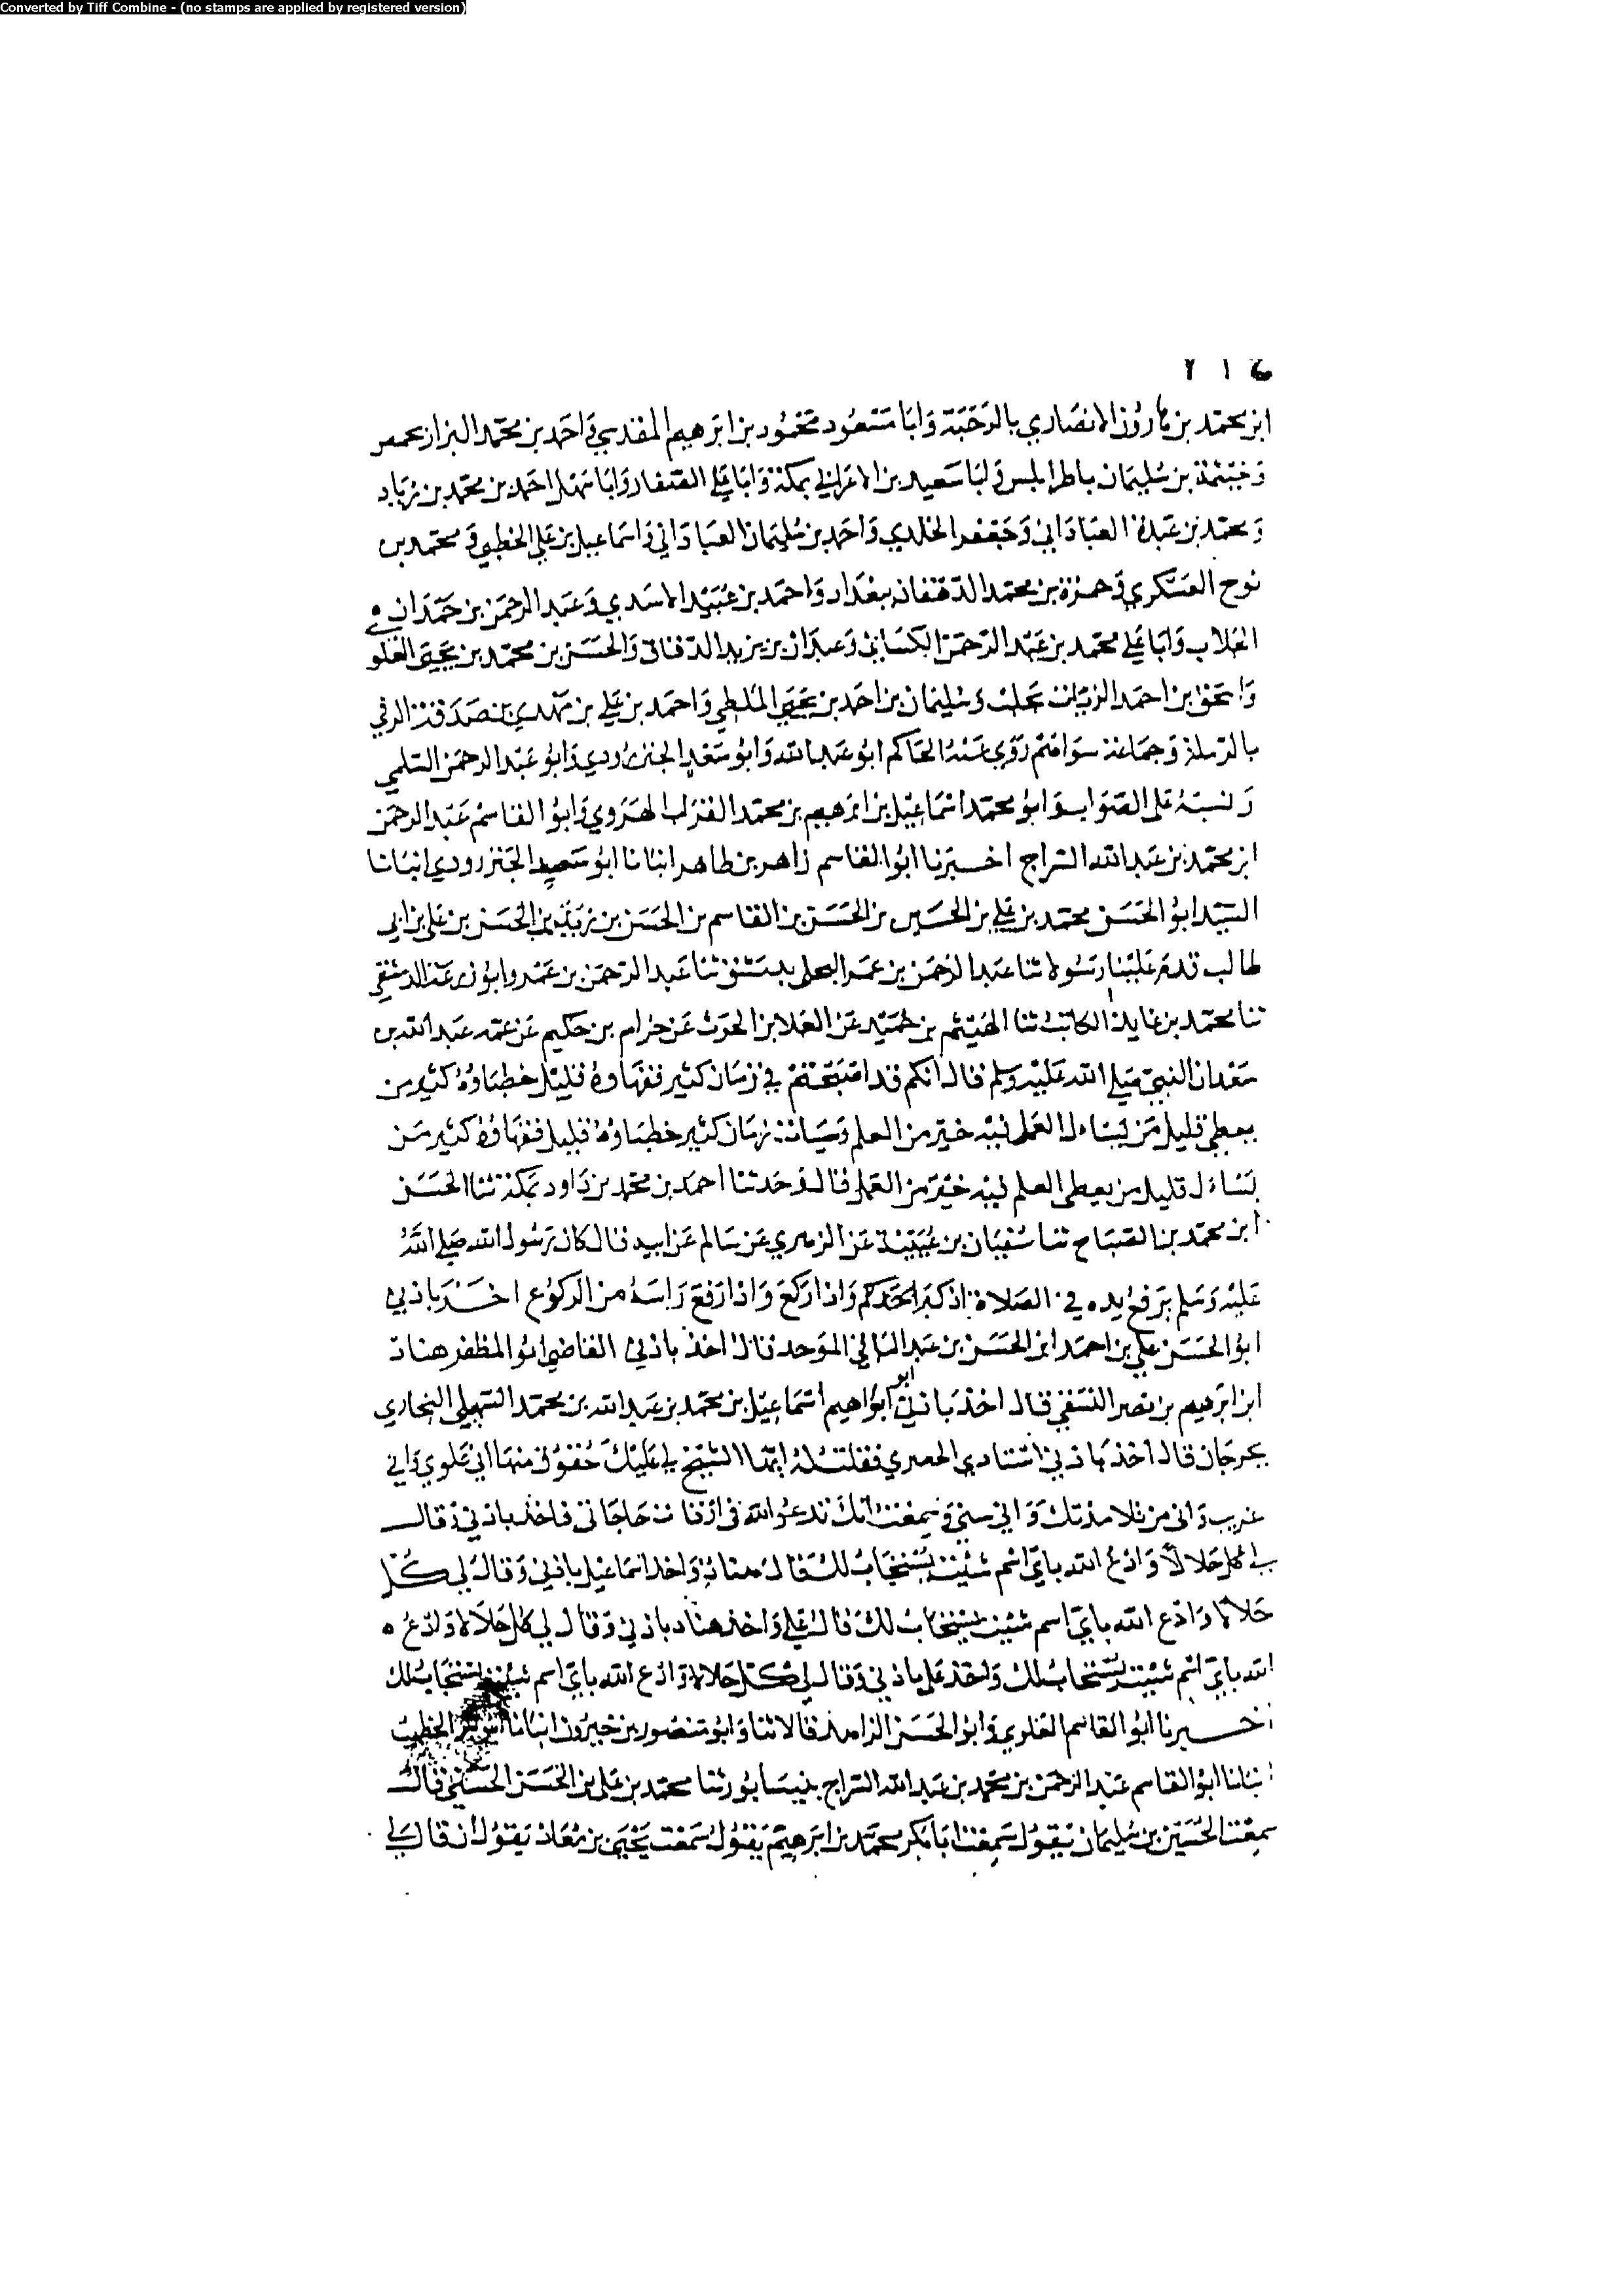 Converted by Tiff Combine - (no stamps are applied by registered version)
٢١٤
ابن محمد بن هارون الانصاري بالرحبة وابا مسعود محمود بن ابرهيم المقدسي واحمد بن محمد البزاز بحمص
وخيثمة بن سليمان باطرابلس وابا سعيد بن الاعرابي بمكة وابا علي الصفار وابا سهل احمد بن محمد بن زياد
ومحمد بن عبدة العباداني وجعفر الخلدي واحمد بن سليمان العباداني واسماعيل بن علي الخطبي ومحمد بن
نوح العسكري وحمزة بن محمد الدهقان ببغداد واحمد بن عبيد الاسدي وعبد الرحمن بن حمدان
الجلاب وابا علي محمد بن عبد الرحمن الكسائي وعبدان بن يزيد الدقاق والحسن بن محمد بن يحيى العلو
واسحق بن احمد الزيات بحلب وسليمان بن احمد بن يحيى الملطي واحمد بن علي بن مهدي بن صدقة الرقي
بالرملة وجماعة سواهم روى عنه الحاكم ابو عبد الله وابو سعد الجنزرودي وابو عبد الرحمن السلمي
ونسبه على الصواب وابو محمد اسماعيل بن ابرهيم بن محمد القراب الهروي وابو القاسم عبد الرحمن
ابن محمد بن عبد الله السراج اخبرنا ابو القاسم زاهر بن طاهر انبانا ابو سعيد الجنزرودي انبانا
السيد ابو الحسن محمد بن علي بن الحسين بن الحسن بن القاسم بن الحسن بن زيد بن الحسن بن علي بن ابي
طالب قدم علينا رسولا ثنا عبد الرحمن بن عمر البجلي بدمشق ثنا عبد الرحمن بن عمرو ابو زرعة الدمشقي
ثنا محمد بن عايذ الكاتب ثنا الهيثم بن حميد عن العلا بن الحرث عن حزام بن حكيم عن عمه عبد الله بن
سعد ان النبي صلى الله عليه وسلم قال انكم قد اصبحتم في زمان كثير فقهاوه قليل خطباوه كثير من
يعطي قليل من يساءل العمل فيه خير من العلم وسياتي زمان كثير خطباوه قليل فقهاوه كثير من
يساءل قليل من يعطي العلم فيه خير من العمل قال وحدثنا احمد بن محمد بن داود بمكة ثنا الحسن
ابن محمد بن الصباح ثنا سفيان بن عيينة عن الزهري عن سالم عن ابيه قال كان رسول الله صلى الله
عليه وسلم يرفع يده في الصلاة اذ كبر احدكم واذا ركع واذا رفع راسه من الركوع اخذ باذني
ابو الحسن علي بن احمد ابن الحسن بن عبد الباقي الموحد قال اخذ باذني القاضي ابو المظفر هناد
ابن ابرهيم بن نصر النسفي قال اخذ باذني ابو ابراهيم اسماعيل بن محمد بن عبد الله بن محمد السهيلي البخاري
بجرجان قال اخذ باذني استادي الحصري فقلت له ايها الشيخ لي عليك حقوق منها اني علوي واني
غريب واني من تلامذتك واني سني وسمعت انك تدعو الله في اوقات حاجاتي فاخذ باذني وقال
لي كل حلالا وادع الله باي اسم شئت يستجاب لك قال هناد واخذ اسماعيل باذني وقال لي كل
حلالا وادع الله باي اسم شئت يستجاب لك قال علي واخذ هناد باذني وقال لي كل حلالا وادع
الله باي اسم شئت يستجاب لك واخذ علي باذني وقال لي كل حلالا وادع الله باي اسم شئت يستجاب لك
اخبرنا ابو القاسم العلوي وابو الحسن الزاهد قالا ثنا وابو منصور بن خيرون انبانا ابو بكر الخطيب
انبانا ابو القاسم عبد الرحمن بن محمد بن عبد الله السراج بنيسابور ثنا محمد بن علي بن الحسن الحسني قال
سمعت الحسين بن سليمان يقول سمعت ابا بكر محمد بن ابرهيم يقول سمعت يحيى بن معاذ يقول ان قال لي